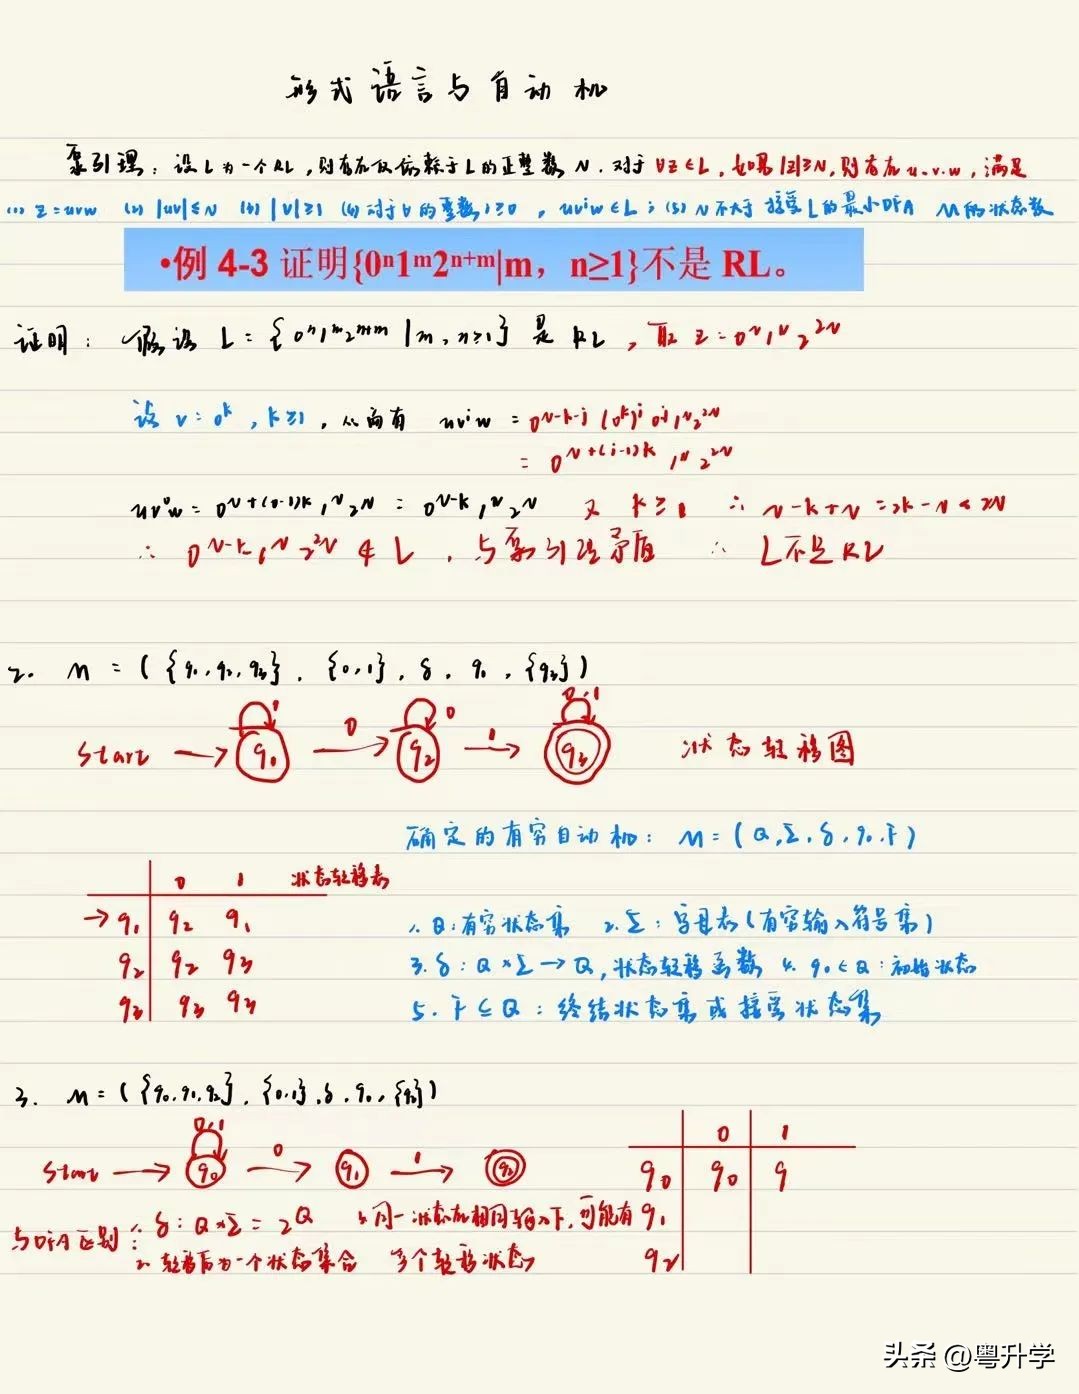 形式语言与自动机
泵引理：设L为一个RL，则存在仅依赖于L的正整数N．对于∀z∈L，如果|z|≥N，则存在u.v.w，满足
(1) z=uvw (2) |uv|≤N (3) |v|≥1 (4) 对于∀的整数i≥0，uvⁱw∈L；(5) N不大于接受L的最小DFA M的状态数
•例 4-3 证明{0ⁿ1ᵐ2ⁿ⁺ᵐ|m，n≥1}不是 RL。
证明：假设 L={0ⁿ1ᵐ2ⁿ⁺ᵐ|m，n≥1}是RL，取 z=0ᴺ1ᴺ2²ᴺ
设 v=0ᵏ，k≥1，从而有 uvⁱw = 0ᴺ⁻ᵏ⁻ʲ(0ᵏ)ⁱ0ʲ1ᴺ2²ᴺ
= 0ᴺ⁺⁽ⁱ⁻¹⁾ᵏ1ᴺ2²ᴺ
uv⁰w = 0ᴺ⁺⁽⁰⁻¹⁾ᵏ1ᴺ2ᴺ = 0ᴺ⁻ᵏ1ᴺ2ᴺ 又 k≥1 ∴ N-k+N=2k-N<2N
∴ 0ᴺ⁻ᵏ1ᴺ2²ᴺ∉L，与泵引理矛盾 ∴ L不是RL
2. M=({q₁,q₂,q₃},{0,1},δ,q₁,{q₃})
1 0 0,1
Start → q₁ 0 → q₂ 1 → q₃ 状态转移图
确定的有穷自动机：M=(Q,Σ,δ,q₀,F)
0 1 状态转移表
→q₁ q₂ q₁
1. Q:有穷状态集 2. Σ：字母表(有穷输入符号集)
q₂ q₂ q₃
3. δ：Q×Σ→Q,状态转移函数 4. q₀∈Q：初始状态
q₃ q₃ q₃
5. F⊆Q：终结状态集或接受状态集
3. M=({q₀,q₁,q₂},{0,1},δ,q₀,{q₂})
0,1
Start → q₀ 0 → q₁ 1 → q₂
0 1
q₀ q₀ q
q₁
q₂
与DFA区别：1. δ：Q×Σ=2^Q 1. 同一状态在相同输入下,可能有
2. 转移后为一个状态集合 多个转移状态
头条 @粤升学